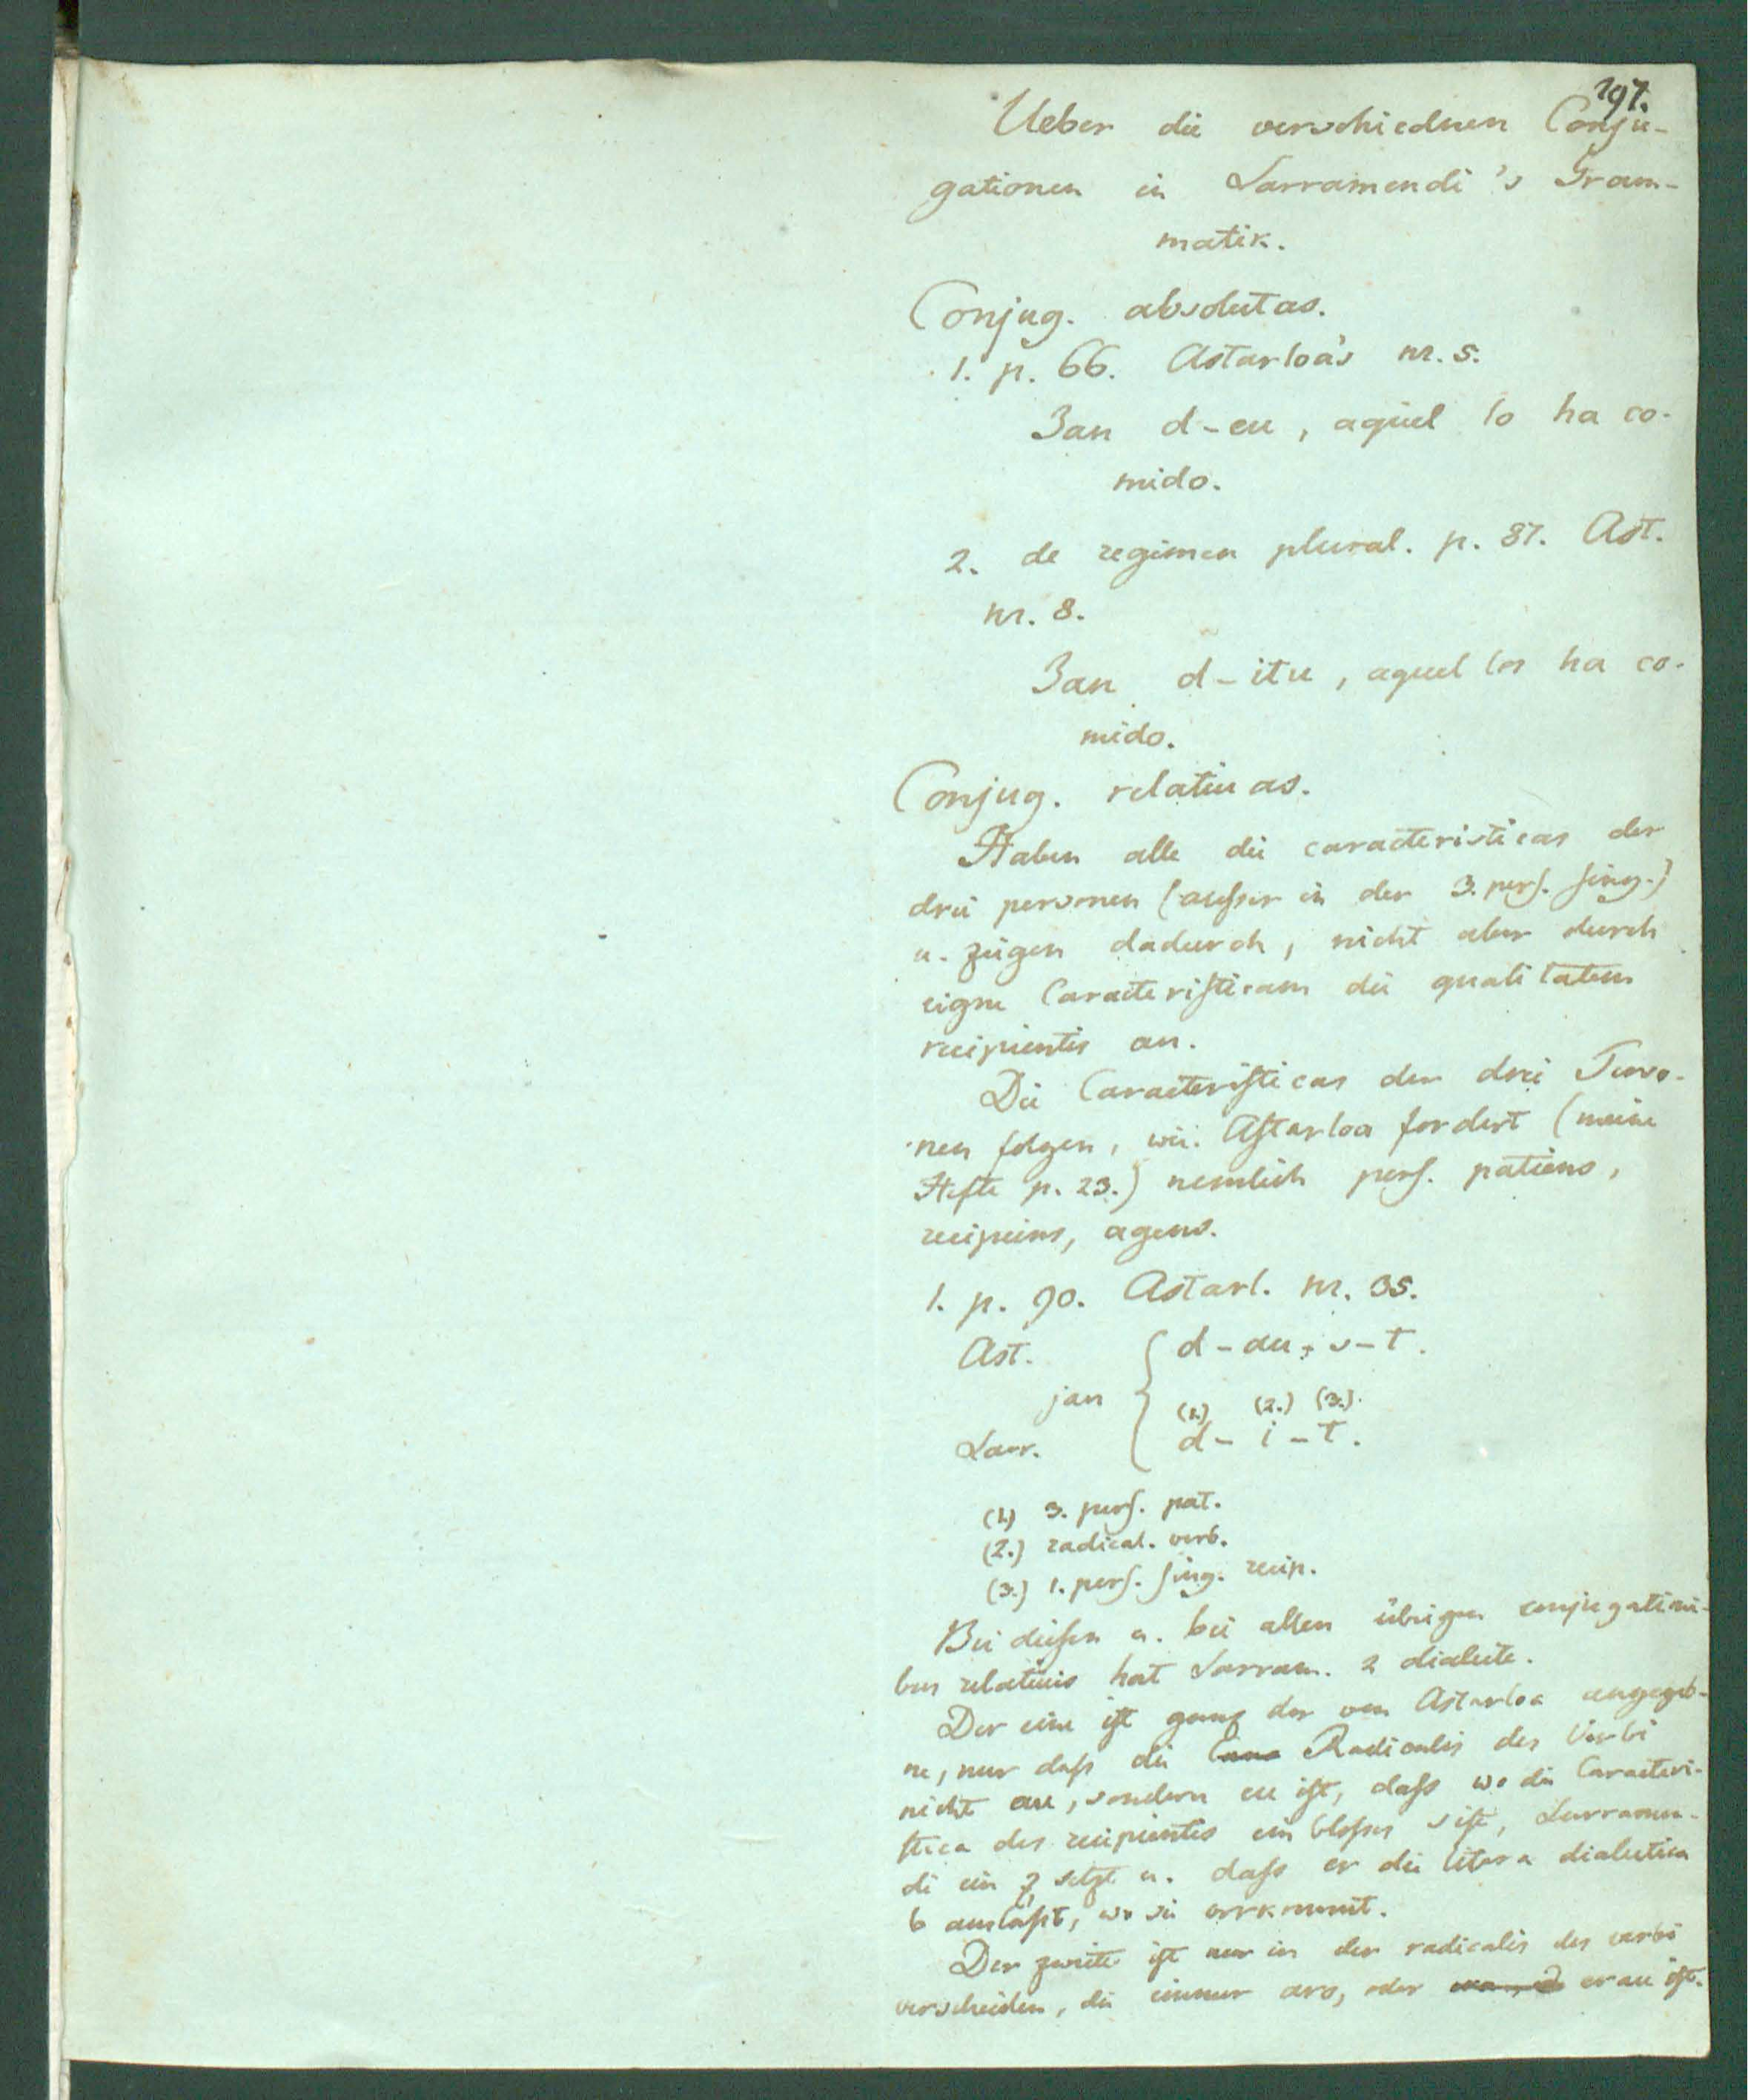 197.
Ueber die verschiednen Conju-
gationen in Larramendi's Gram-
matik.
Conjug. absolutas.
1. p. 66. Astarloa's nr. 5.
Jan d-eu, aquel lo ha co-
mido.
2. de regimen plural. p. 87. Ast.
nr. 8.
Jan d-itu, aquel los ha co-
mido.
Conjug. relativas.
Haben alle die caracteristicas der
drei personen (ausser in der 3. pers. sing.)
u. zeigen dadurch, nicht aber durch
eigne Caracteristicam die qualitatem
recipientis an.
Die Caracteristicas der drei Perso-
nen folgen, wie Astarloa fordert (meine
Hefte p. 23.) nemlich pers. patiens,
recipiens, agens.
1. p. 90. Astarl. nr. 35.
Ast. d-au-s-t.
jan
(1.) (2.) (3.)
Larr. d-i-t.
(1.) 3. pers. pat.
(2.) radical. verb.
(3.) 1. pers. sing. recip.
Bei diesen u. bei allen übrigen conjugationi-
bus relativis hat Larram. 2 dialecte.
Der eine ist ganz der von Astarloa angegeb-
ne, nur dass die Radicalis des Verbi
nicht au, sondern eu ist, dass wo die Caracteri-
stica des recipientis ein blosses s ist, Larramen-
di ein z setzt u. dass er die litera dialectica
b auslässt, wo sie vorkommt.
Der zweite ist nur in der radicalis des verbi
verschieden, die immer aro, oder erau ist.